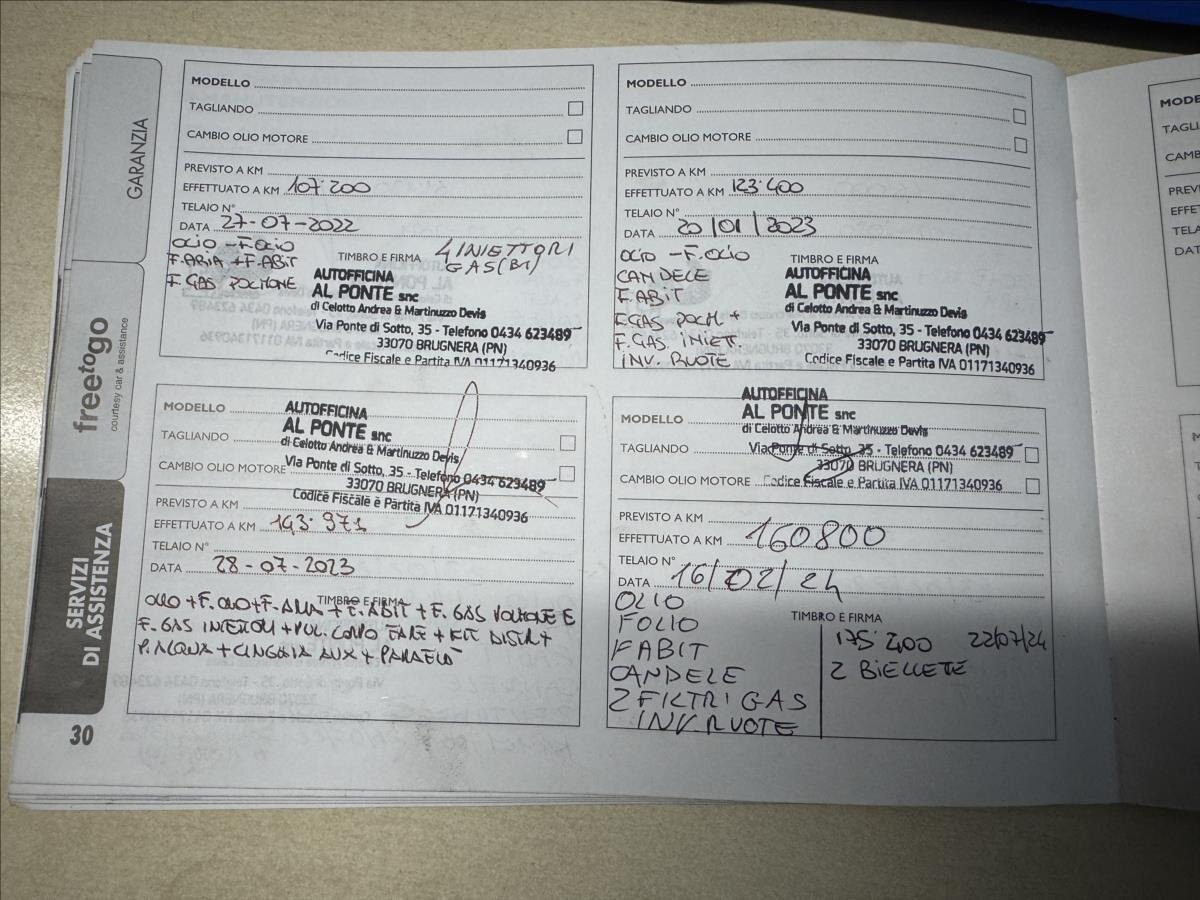 GARANZIA
freetogo
courtesy car & assistance
SERVIZI
DI ASSISTENZA
30
MODELLO
TAGLIANDO
CAMBIO OLIO MOTORE
PREVISTO A KM
EFFETTUATO A KM 107.200
TELAIO N°
DATA 27-07-2022
OLIO - F.OLIO
F.ARIA + F.ABIT
F. GAS POLMONE
4 INIETTORI
GAS (B1)
TIMBRO E FIRMA
AUTOFFICINA
AL PONTE snc
di Celotto Andrea & Martinuzzo Devis
Via Ponte di Sotto, 35 - Telefono 0434 623489
33070 BRUGNERA (PN)
Codice Fiscale e Partita IVA 01171340936
MODELLO
TAGLIANDO
CAMBIO OLIO MOTORE
PREVISTO A KM
EFFETTUATO A KM 123.400
TELAIO N°
DATA 20/01/2023
OLIO - F.OLIO
CANDELE
F.ABIT
F.GAS POLM +
F. GAS INIET.
INV. RUOTE
TIMBRO E FIRMA
AUTOFFICINA
AL PONTE snc
di Celotto Andrea & Martinuzzo Devis
Via Ponte di Sotto, 35 - Telefono 0434 623489
33070 BRUGNERA (PN)
Codice Fiscale e Partita IVA 01171340936
MODELLO
TAGLIANDO
CAMBIO OLIO MOTORE
AUTOFFICINA
AL PONTE snc
di Celotto Andrea & Martinuzzo Devis
Via Ponte di Sotto, 35 - Telefono 0434 623489
33070 BRUGNERA (PN)
Codice Fiscale e Partita IVA 01171340936
PREVISTO A KM
EFFETTUATO A KM 143.971
TELAIO N°
DATA 28-07-2023
TIMBRO E FIRMA
OLIO + F.OLIO + F.ARIA + F.ABIT + F. GAS POLMONE E
F. GAS INIETTORI + PUL. CORPO FARF + KIT DISTR +
P.ACQUA + CINGHIA AUX +
MODELLO
TAGLIANDO
CAMBIO OLIO MOTORE
AUTOFFICINA
AL PONTE snc
di Celotto Andrea & Martinuzzo Devis
Via Ponte di Sotto, 35 - Telefono 0434 623489
33070 BRUGNERA (PN)
Codice Fiscale e Partita IVA 01171340936
PREVISTO A KM
EFFETTUATO A KM 160800
TELAIO N°
DATA 16/02/24
OLIO
FOLIO
FABIT
CANDELE
2 FILTRI GAS
INV.RUOTE
TIMBRO E FIRMA
175.200 22/07/24
2 BIELLETE